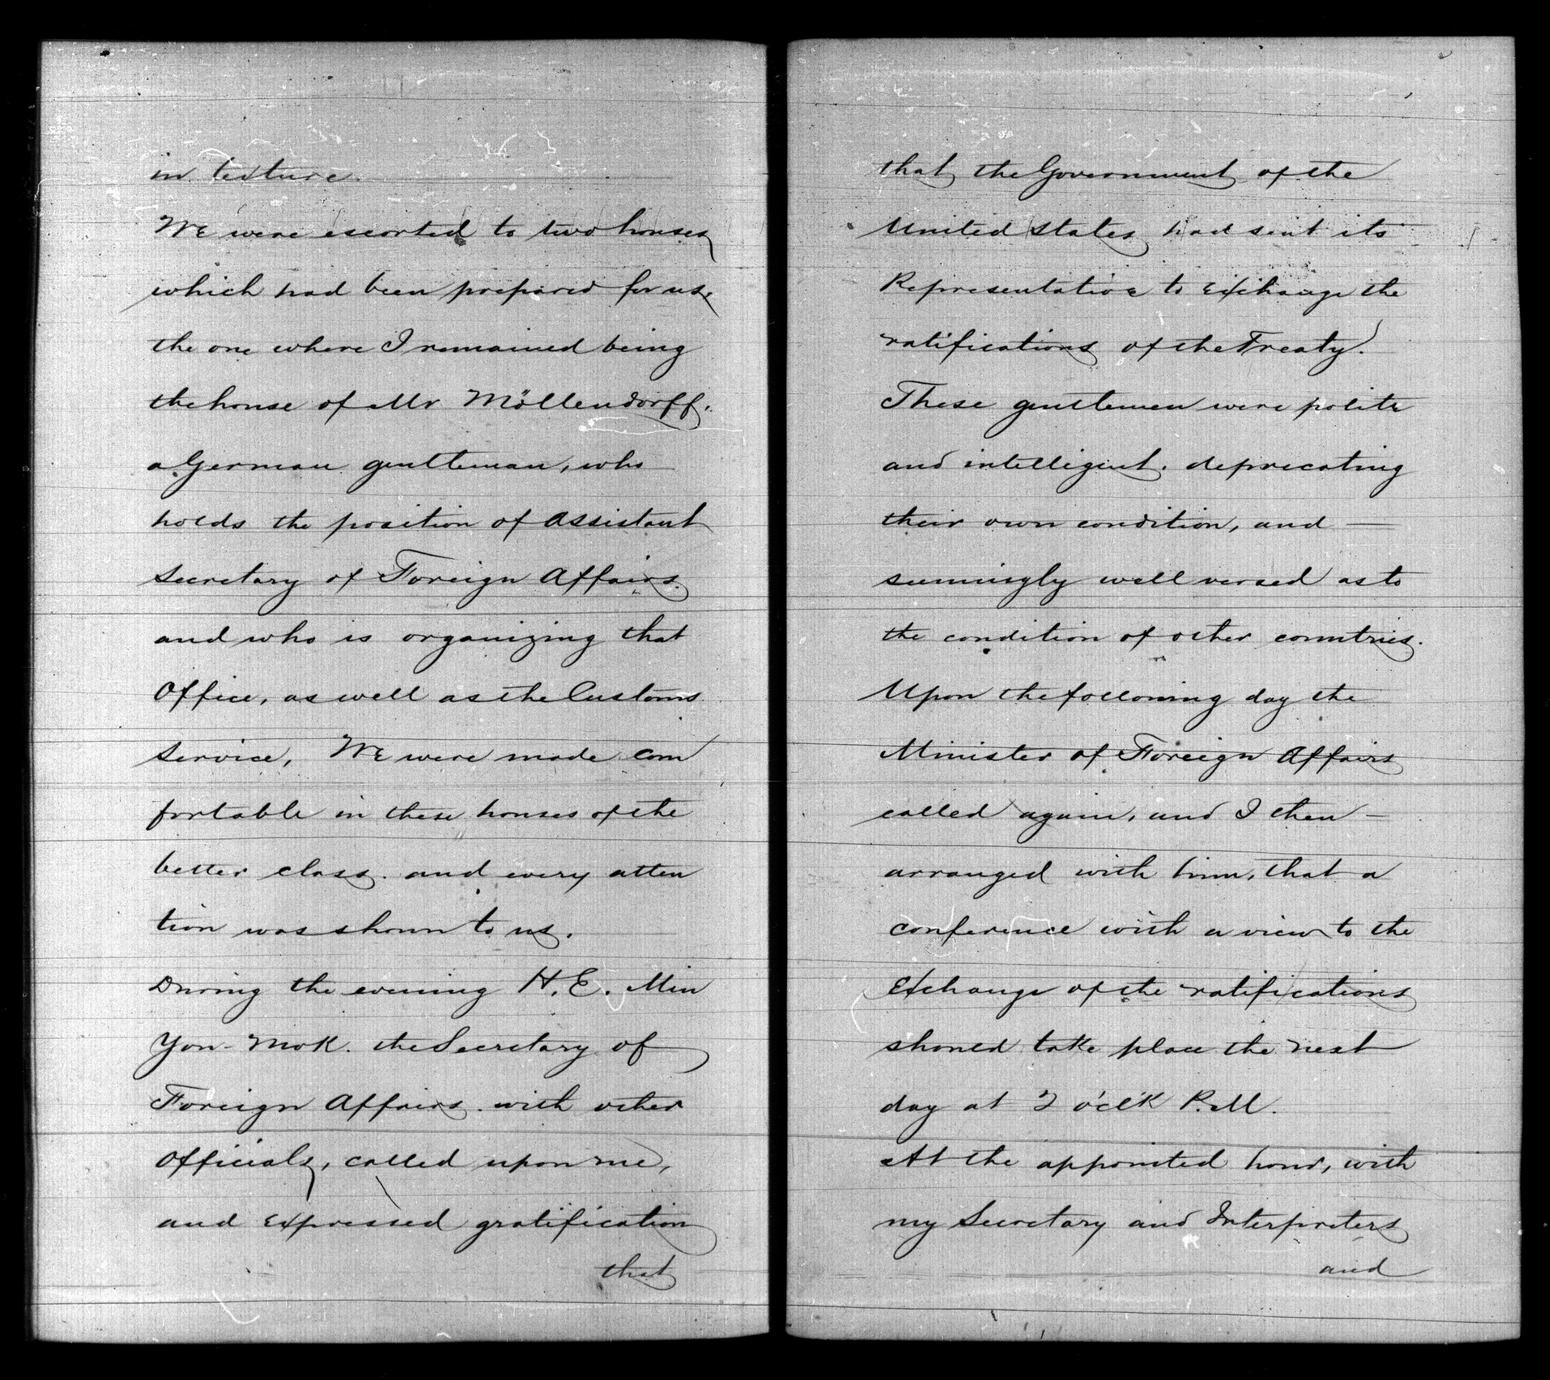 in texture.
We were escorted to two houses
which had been prepared for us,
the one where I remained being
the house of Mr Möllendorff.
a German gentleman, who
holds the position of Assistant
Secretary of Foreign Affairs.
and who is organizing that
Office, as well as the Customs
Service, We were made com
fortable in these houses of the
better class. and every atten
tion was shown to us.
During the evening H.E. Min
Yon-Mok. the Secretary of
Foreign Affairs. with other
Officials, called upon me,
and expressed gratification
that
that the Government of the
United States had sent its
Representative to exchange the
ratifications of the Treaty.
These gentlemen were polite
and intelligent. deprecating
their own condition, and —
seemingly well versed as to
the condition of other countries.
Upon the following day the
Minister of Foreign Affairs
called again, and I then —
arranged with him, that a
conference with a view to the
exchange of the ratifications
should take place the next
day at 2 o'cl'k P.M.
At the appointed hour, with
my Secretary and Interpreters
and